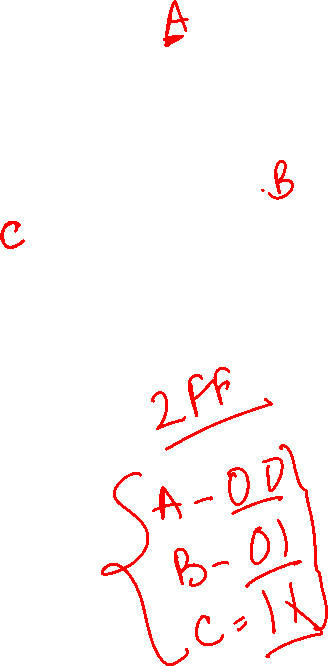 A
B
C
2FF
A - 00
B - 01
C = 1X